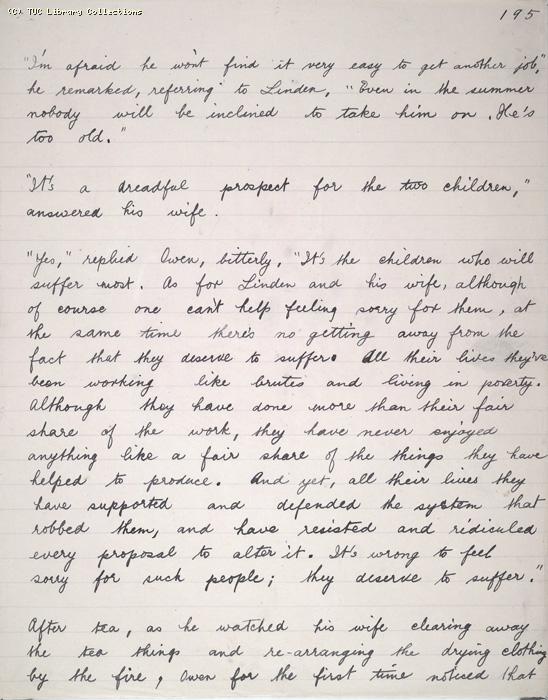 (C) TUC Library Collections
195
"I'm afraid he won't find it very easy to get another job,"
he remarked, referring to Linden, "Even in the summer
nobody will be inclined to take him on. He's
too old."
"It's a dreadful prospect for the two children,"
answered his wife.
"Yes," replied Owen, bitterly, "It's the children who will
suffer most. As for Linden and his wife, although
of course one can't help feeling sorry for them, at
the same time there's no getting away from the
fact that they deserve to suffer. All their lives they've
been working like brutes and living in poverty.
Although they have done more than their fair
share of the work, they have never enjoyed
anything like a fair share of the things they have
helped to produce. And yet, all their lives they
have supported and defended the system that
robbed them, and have resisted and ridiculed
every proposal to alter it. It's wrong to feel
sorry for such people; they deserve to suffer."
After tea, as he watched his wife clearing away
the tea things and re-arranging the drying clothing
by the fire, Owen for the first time noticed that